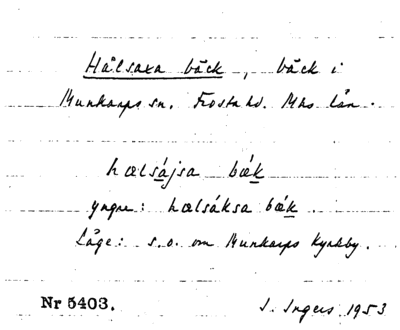 Hälsaxa bäck, bäck i
Munkarps sn. Frosta hd. Mhs län.
hælsájsa bǽk
yngre: hælsáksa bǽk
Läge: s.o. om Munkarps kyrkby.
Nr 5403. I. Ingers 1953